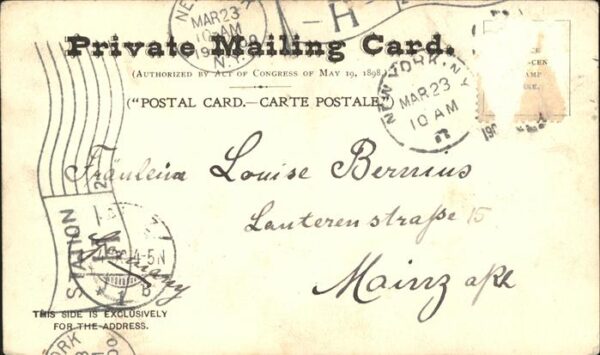 NEW YORK, N.Y.
MAR 23
10 AM
N.Y.
H
Private Mailing Card.
(AUTHORIZED BY ACT OF CONGRESS OF MAY 19, 1898.)
("POSTAL CARD.—CARTE POSTALE.")
NEW YORK, N.Y.
MAR 23
10 AM
Fräulein Louise Bernius
Lauterenstraße 15
Mainz a/Rh
Germany
STATION
4-5N
1 B
THIS SIDE IS EXCLUSIVELY
FOR THE ADDRESS.